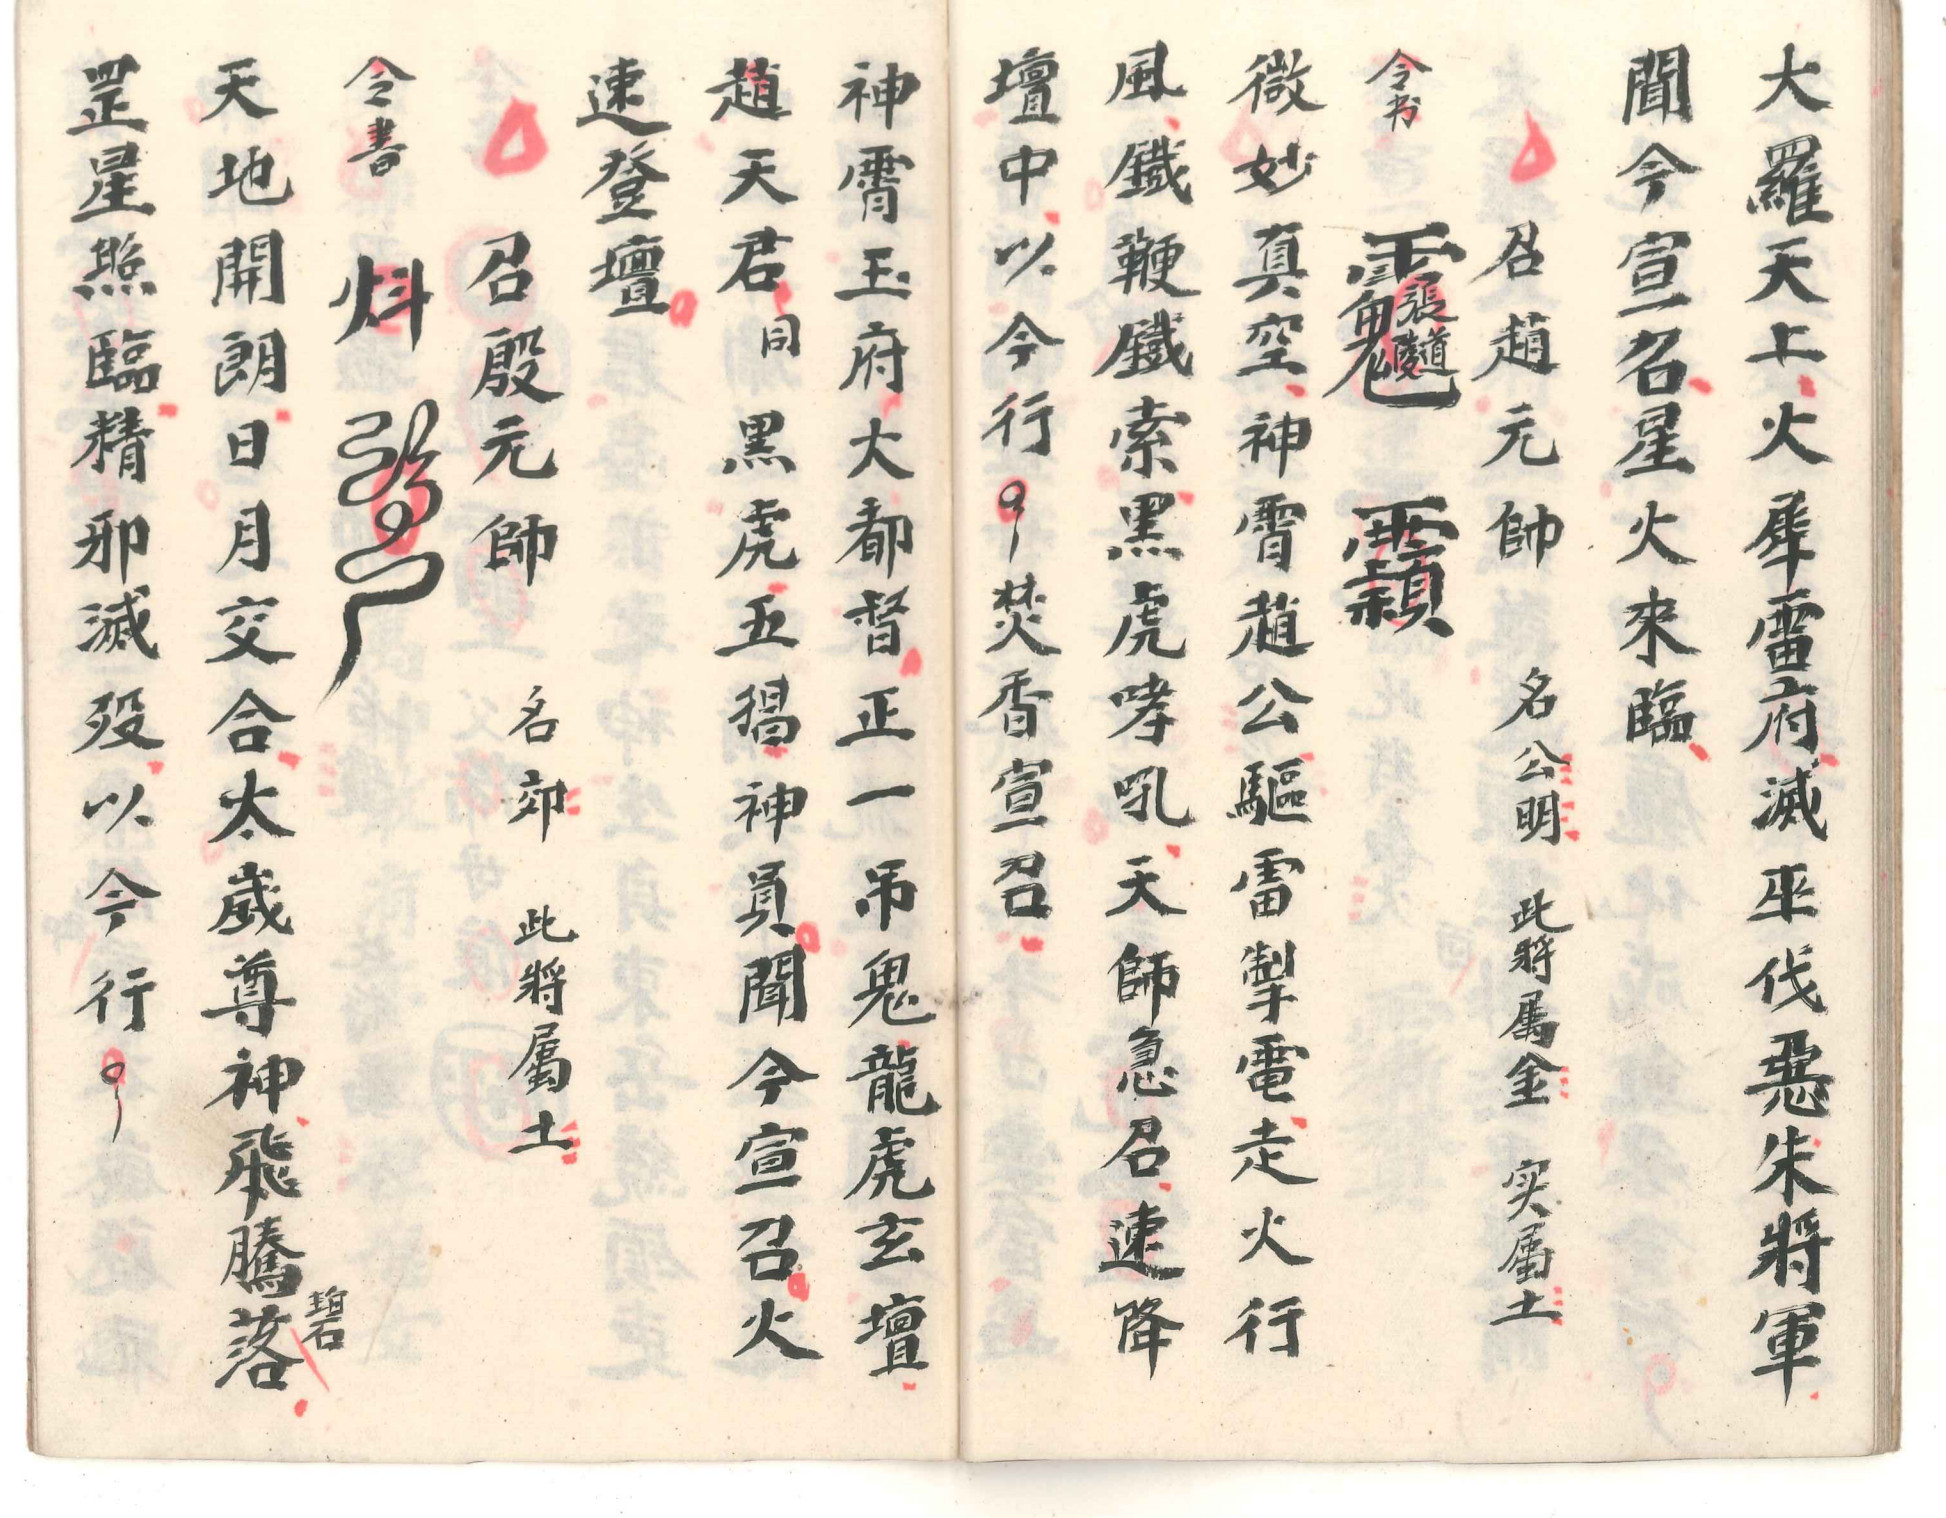 大羅天上火犀雷府滅巫伐惡朱將軍
聞今宣名星火來臨
召趙元帥 名公明 此將属金 实属土
令书
張道陵
微妙真空神霄趙公驅雷掣電走火行
風鐵鞭鐵索黑虎哮吼天師急召速降
壇中以今行 焚香宣召
神霄玉府大都督正一吊鬼龍虎玄壇
趙天君同黑虎五猖神員聞今宣召火
速登壇
召殷元帥 名郊 此將屬土
令書
天地開朗日月交合太歲尊神飛騰落
碧
罡星照臨精邪滅殁以今行